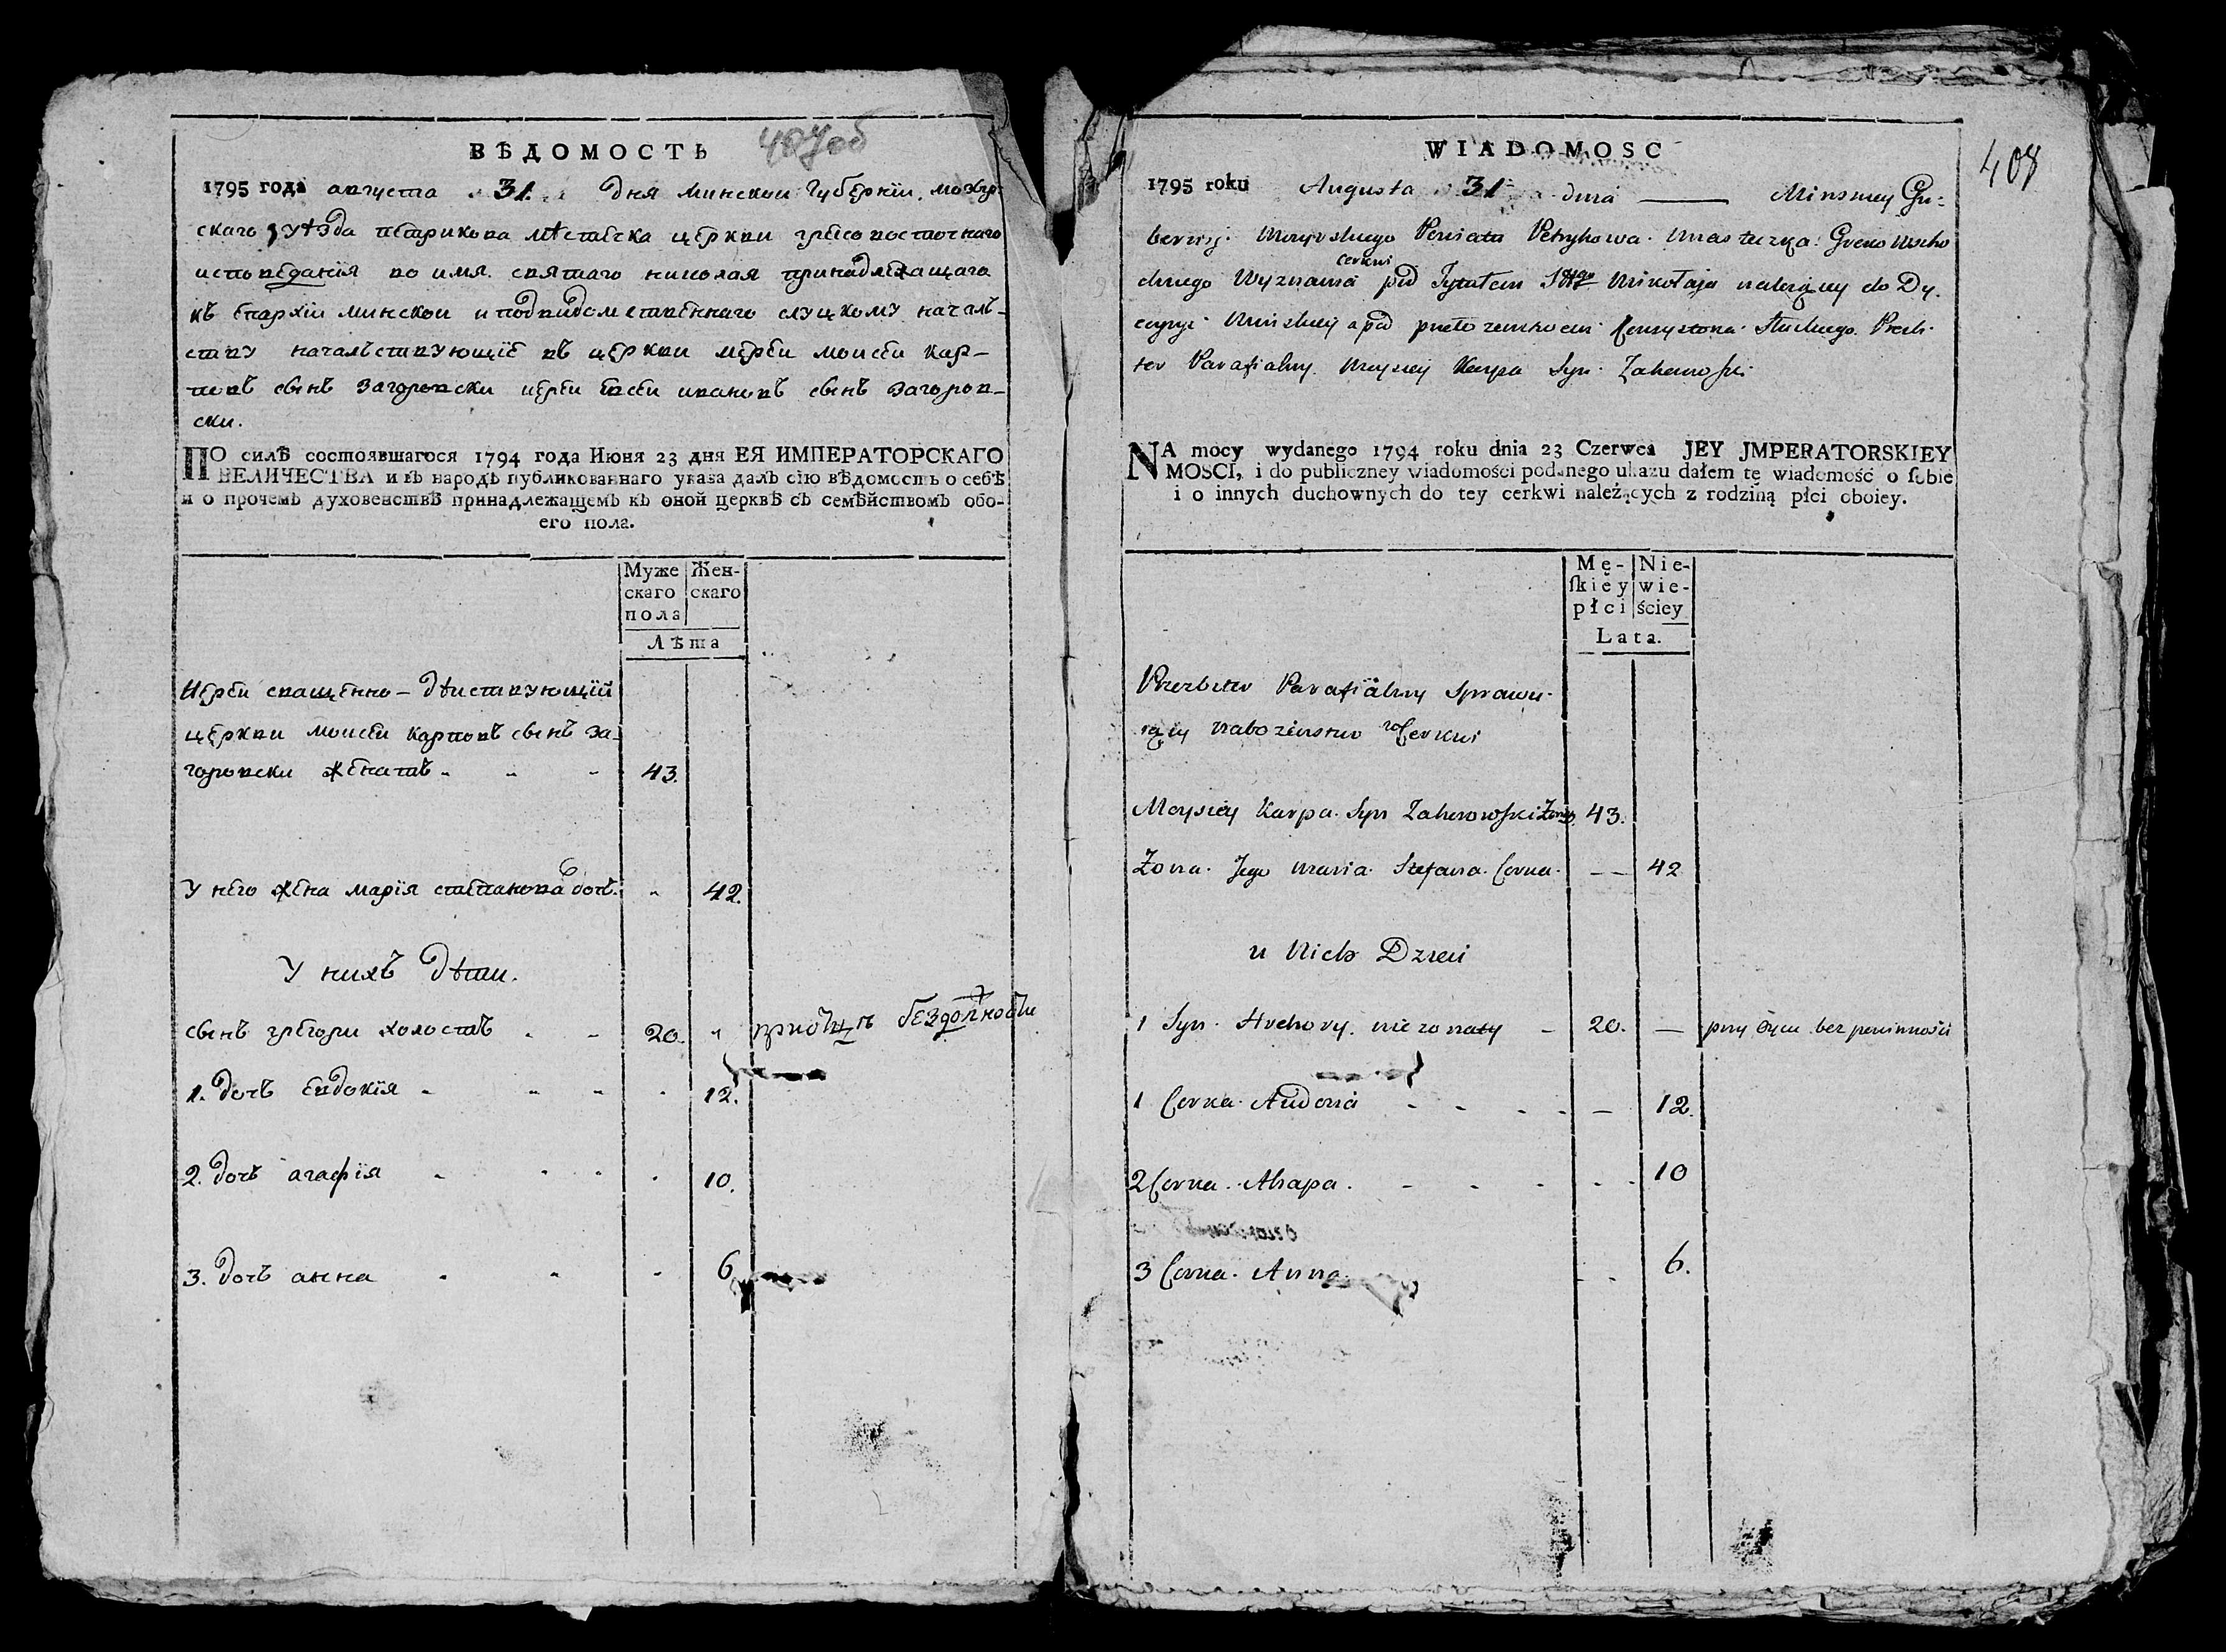 ВѢДОМОСТЬ
407об
1795 года августа 31. дня минской губернїи, мозыр-
скаго уѣзда петрикова мѣстечка церкви греко восточнаго
исповеданїя во имя святаго николая принадлежащаго
къ епархїи минской и подведомственнаго слуцкому началь-
ству началствующїе въ церкви иереи моисеи кар-
повъ сынъ загоровски иереи евсеи ивановъ сынъ загоров-
ски.
ПО силѣ состоявшагося 1794 года Июня 23 дня ЕЯ ИМПЕРАТОРСКАГО
ВЕЛИЧЕСТВА и въ народъ публикованнаго указа далъ сїю вѣдомость о себѣ
и о прочемъ духовенствѣ принадлежащемъ къ оной церквѣ съ семѣйствомъ обо-
его пола.
Муже Жен-
скаго скаго
пола
Лѣта
Иереи священно-дѣиствующїй
церкви моисеи карповъ сынъ за-
горовски женатъ 43.
У него жена марїя стефанова дочь. 42.
У нихъ дѣти.
сынъ грегори холостъ 20. при отцѣ бездолжности
1. дочь евдокїя 12.
2. дочь агафїя 10.
3. дочь анна 6
WIADOMOSC
408
1795 roku Augusta 31 dnia Minskiey Gu-
bernij Mozyrskiego Powiata Petrykowa Miasteczka Greko Wscho
cerkwi
dniego Wyznania pod Tytułem Sttgo Mikołaja należący do Dy-
ecyzyi Minskiey a pod Konsystora Słuckiego Prezbi-
ter Parafialny Moysiey Karpa Syn Zahorowski
NA mocy wydanego 1794 roku dnia 23 Czerwca JEY JMPERATORSKIEY
MOSCI, i do publiczney wiadomości podanego ukazu dałem tę wiadomość o sobie
i o innych duchownych do tey cerkwi należących z rodziną płci oboiey.
Mę- Nie-
skiey wie-
płci ściey
Lata.
Prezbiter Parafialny Sprawu-
iący nabożenstwo w Cerkwi
Moysiey Karpa Syn Zahorowski Żonaty 43.
Żona Jego Maria Stefana Corka 42
u Nich Dzieci
1 Syn Hrehory nie zonaty 20. przy Oycu bez powinności
1 Corka Audocia 12.
2 Corka Ahapa 10
3 Corka Anna 6.